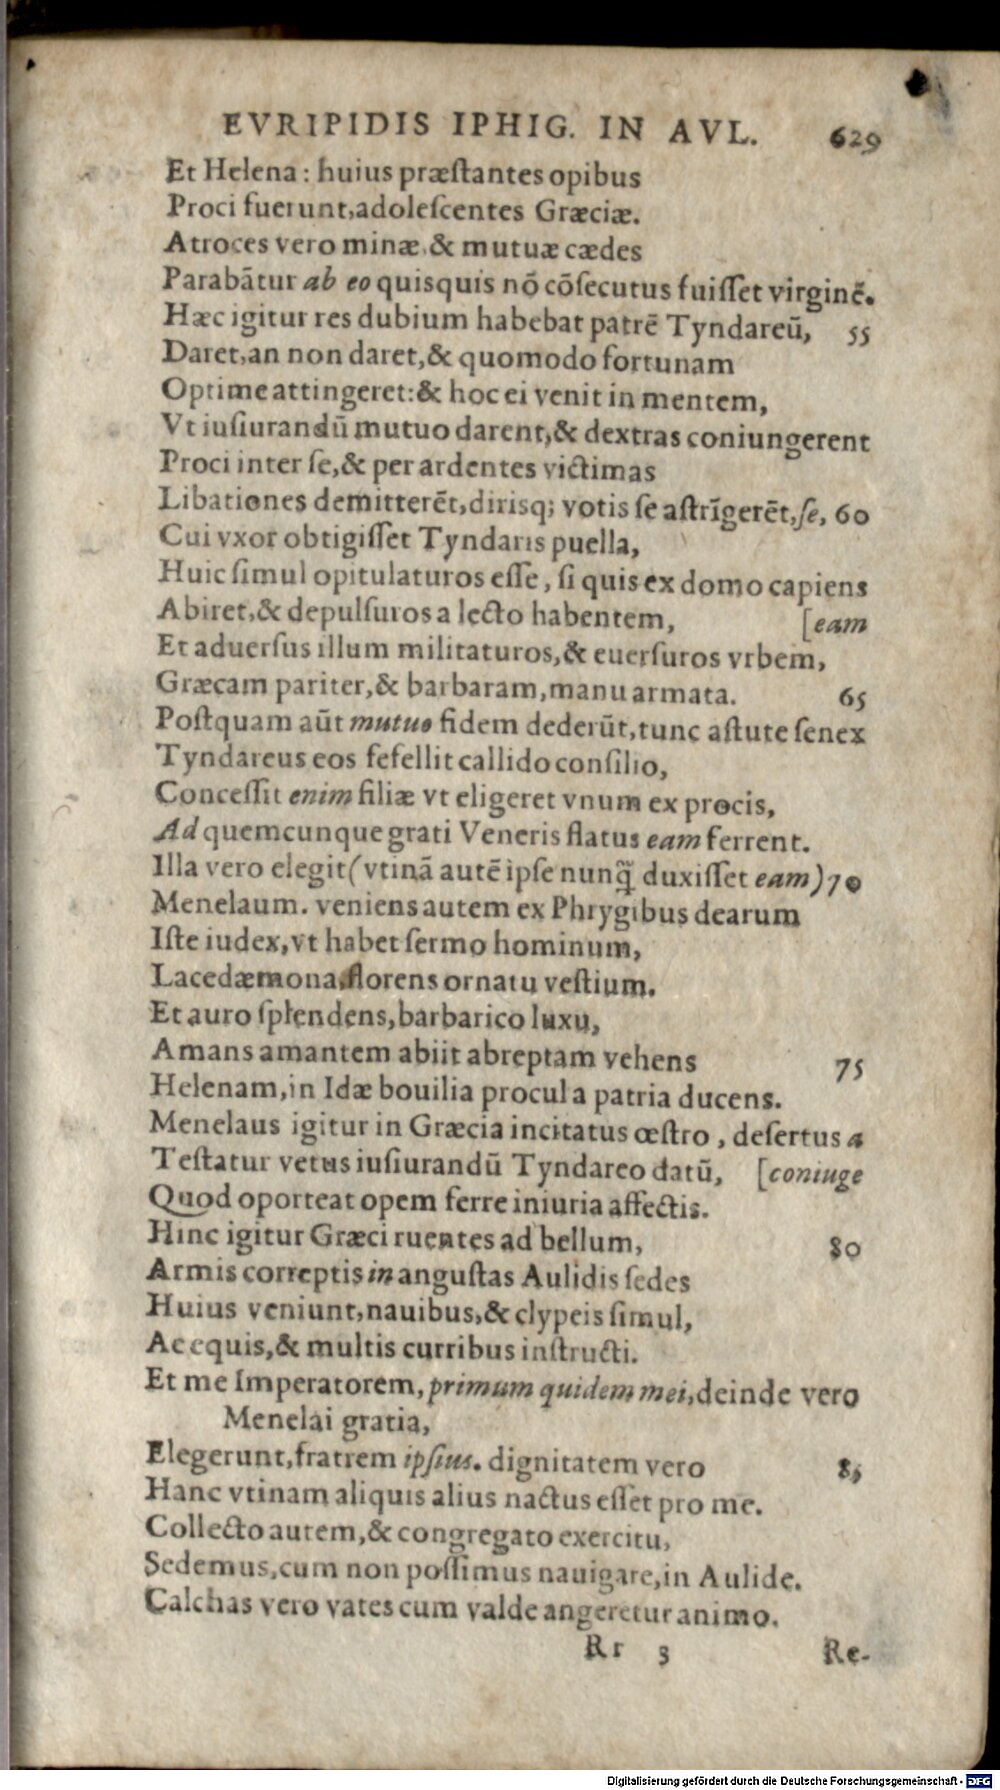 EVRIPIDIS IPHIG. IN AVL. 629
Et Helena: huius præſtantes opibus
Proci fuerunt, adoleſcentes Græciæ.
Atroces vero minæ, & mutuæ cædes
Parabātur ab eo quisquis nō cōſecutus fuiſſet virginē.
Hæc igitur res dubium habebat patrē Tyndareū, 55
Daret, an non daret, & quomodo fortunam
Optime attingeret: & hoc ei venit in mentem,
Vt iuſiurandū mutuo darent, & dextras coniungerent
Proci inter ſe, & per ardentes victimas
Libationes demitterēt, dirisq; votis ſe aſtrīgerēt, ſe, 60
Cui vxor obtigiſſet Tyndaris puella,
Huic ſimul opitulaturos eſſe, ſi quis ex domo capiens
Abiret, & depulſuros a lecto habentem, [eam
Et aduerſus illum militaturos, & euerſuros vrbem,
Græcam pariter, & barbaram, manu armata. 65
Poſtquam aūt mutuo fidem dederūt, tunc aſtute ſenex
Tyndareus eos fefellit callido conſilio,
Conceſſit enim filiæ vt eligeret vnum ex procis,
Ad quemcunque grati Veneris flatus eam ferrent.
Illa vero elegit (vtinā autē ipſe nunq̃ duxiſſet eam) 70
Menelaum. veniens autem ex Phrygibus dearum
Iſte iudex, vt habet ſermo hominum,
Lacedæmona, florens ornatu veſtium.
Et auro ſplendens, barbarico luxu,
Amans amantem abiit abreptam vehens 75
Helenam, in Idæ bouilia procul a patria ducens.
Menelaus igitur in Græcia incitatus œſtro, deſertus a
Teſtatur vetus iuſiurandū Tyndareo datū, [coniuge
Quod oporteat opem ferre iniuria affectis.
Hinc igitur Græci ruentes ad bellum, 80
Armis correptis in anguſtas Aulidis ſedes
Huius veniunt, nauibus, & clypeis ſimul,
Ac equis, & multis curribus inſtructi.
Et me Imperatorem, primum quidem mei, deinde vero
Menelai gratia,
Elegerunt, fratrem ipſius. dignitatem vero 85
Hanc vtinam aliquis alius nactus eſſet pro me.
Collecto autem, & congregato exercitu,
Sedemus, cum non poſſimus nauigare, in Aulide.
Calchas vero vates cum valde angeretur animo.
Rr 3 Re-
Digitalisierung gefördert durch die Deutsche Forschungsgemeinschaft - DFG